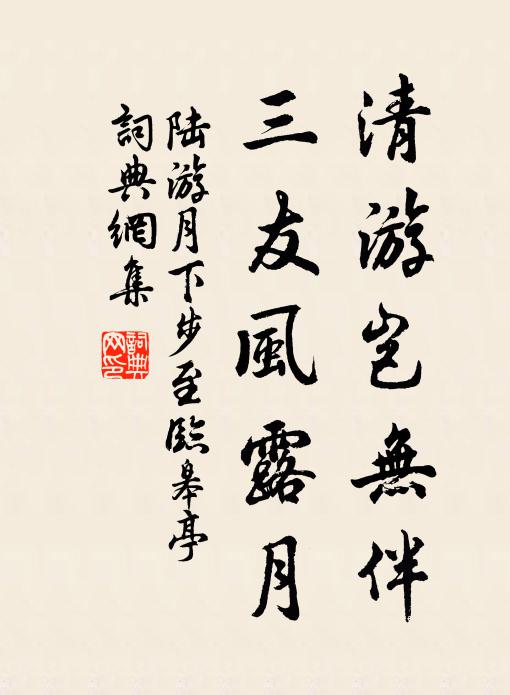 清游岂無伴
三友風露月
陆游月下步至臨皋亭
詞典網集
詞典
网印